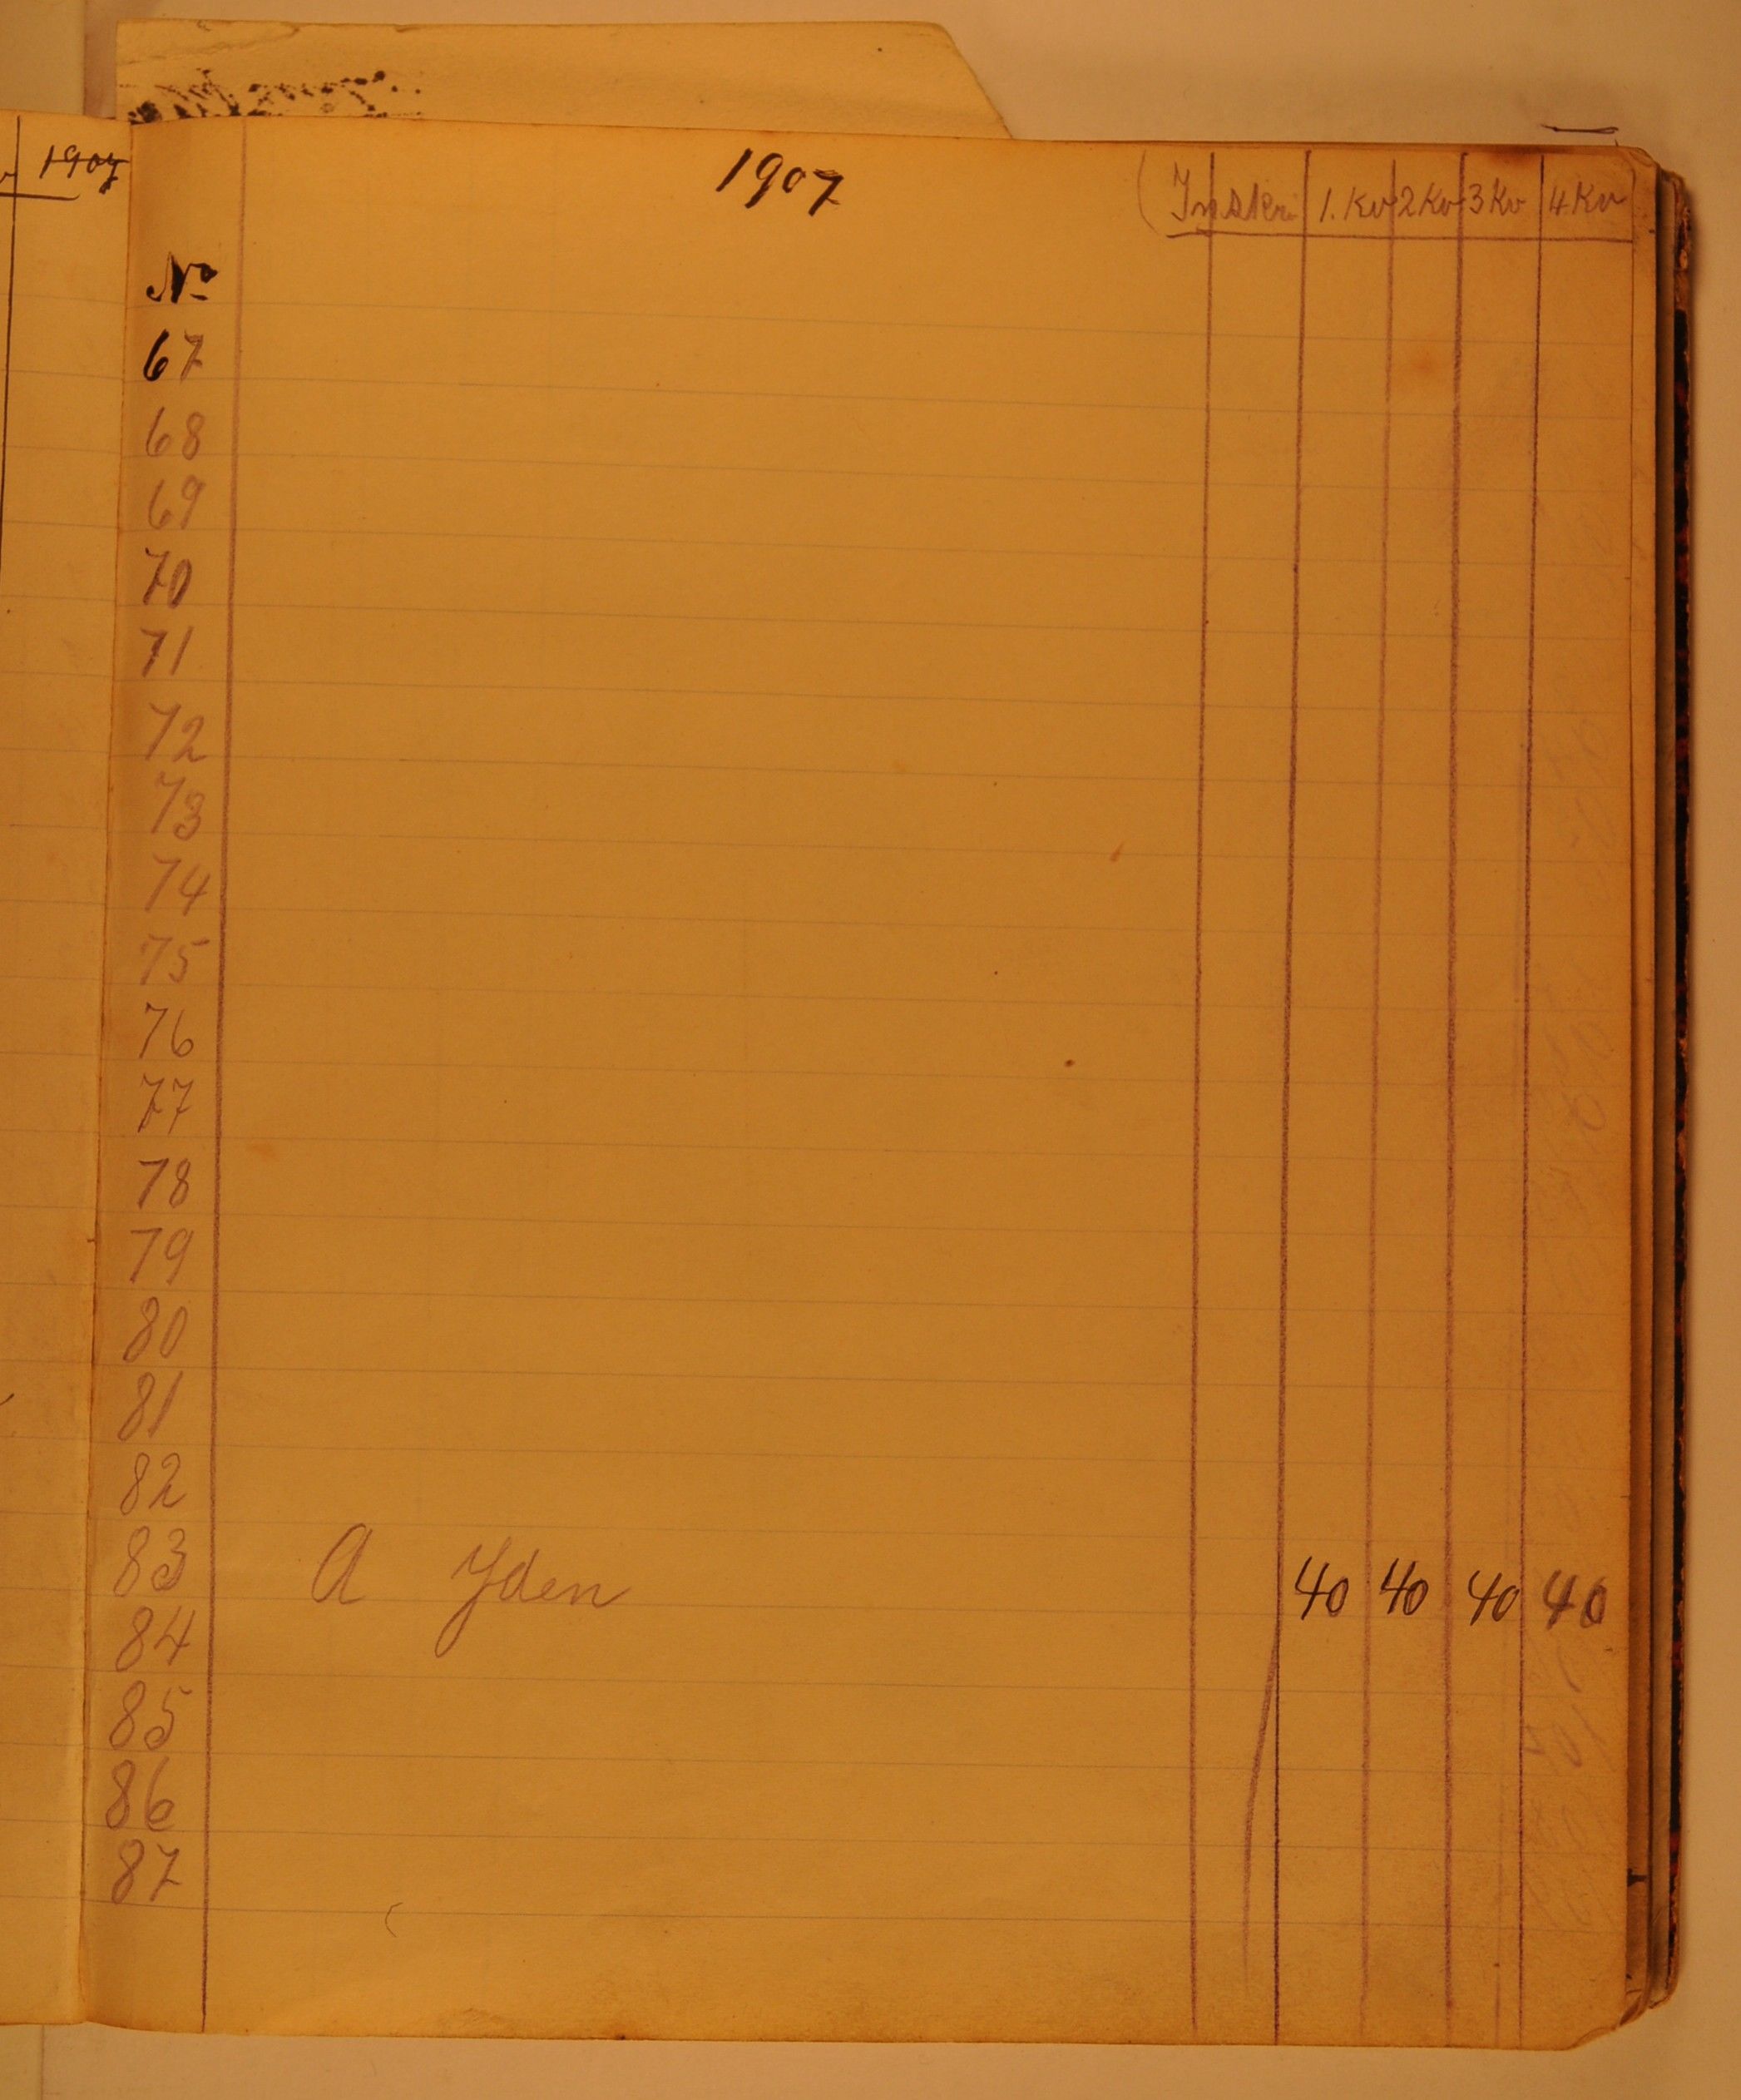 1907
1907
Inskri 1. Kv 2 Kv 3 Kv 4 Kv
No
67
68
69
70
71
72
73
74
75
76
77
78
79
80
81
82
83 A Yden 40 40 40 40
84
85
86
87